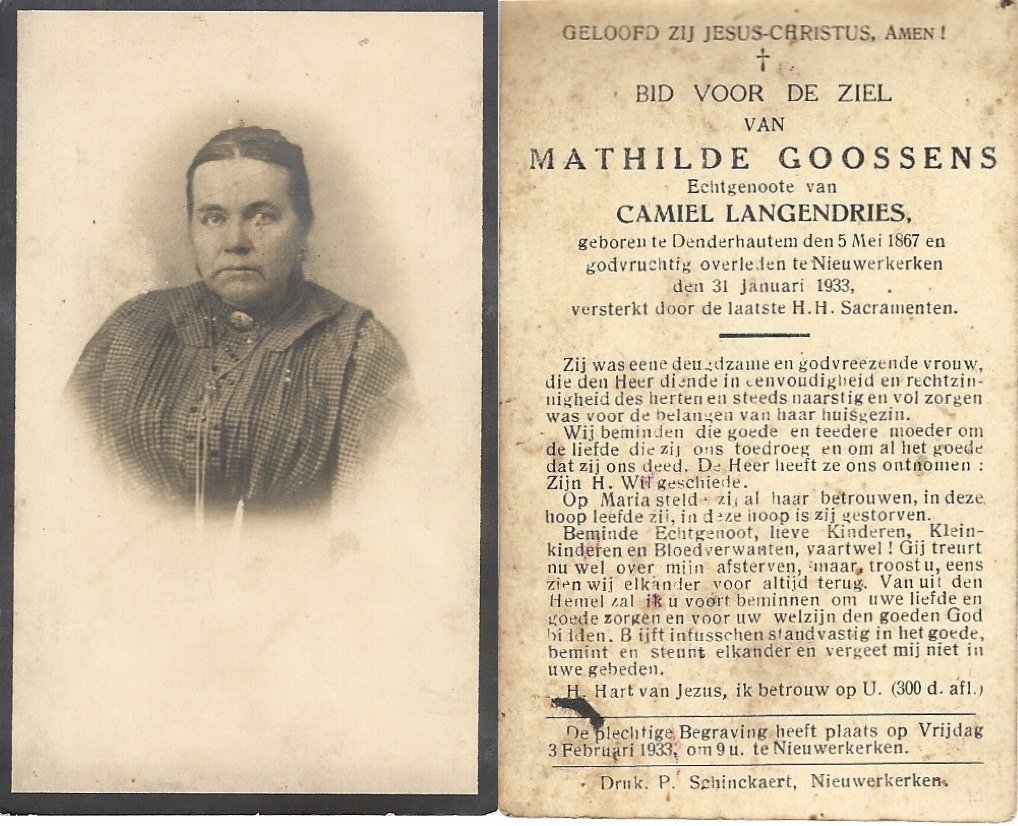 GELOOFD ZIJ JESUS-CHRISTUS, AMEN!
†
BID VOOR DE ZIEL
VAN
MATHILDE GOOSSENS
Echtgenoote van
CAMIEL LANGENDRIES,
geboren te Denderhautem den 5 Mei 1867 en
godvruchtig overleden te Nieuwerkerken
den 31 Januari 1933,
versterkt door de laatste H.H. Sacramenten.
Zij was eene deugdzame en godvreezende vrouw,
die den Heer diende in eenvoudigheid en rechtzin-
nigheid des herten en steeds naarstig en vol zorgen
was voor de belangen van haar huisgezin.
Wij beminden die goede en teedere moeder om
de liefde die zij ons toedroeg en om al het goede
dat zij ons deed. De Heer heeft ze ons ontnomen :
Zijn H. Wil geschiede.
Op Maria stelde zij al haar betrouwen, in deze
hoop leefde zij, in deze hoop is zij gestorven.
Beminde Echtgenoot, lieve Kinderen, Klein-
kinderen en Bloedverwanten, vaartwel ! Gij treurt
nu wel over mijn afsterven, maar, troost u, eens
zien wij elkander voor altijd terug. Van uit den
Hemel zal ik u voort beminnen om uwe liefde en
goede zorgen en voor uw welzijn den goeden God
bidden. Blijft intusschen standvastig in het goede,
bemint en steunt elkander en vergeet mij niet in
uwe gebeden.
H. Hart van Jezus, ik betrouw op U. (300 d. afl.)
De plechtige Begraving heeft plaats op Vrijdag
3 Februari 1933, om 9 u. te Nieuwerkerken.
Druk. P. Schinckaert, Nieuwerkerken.